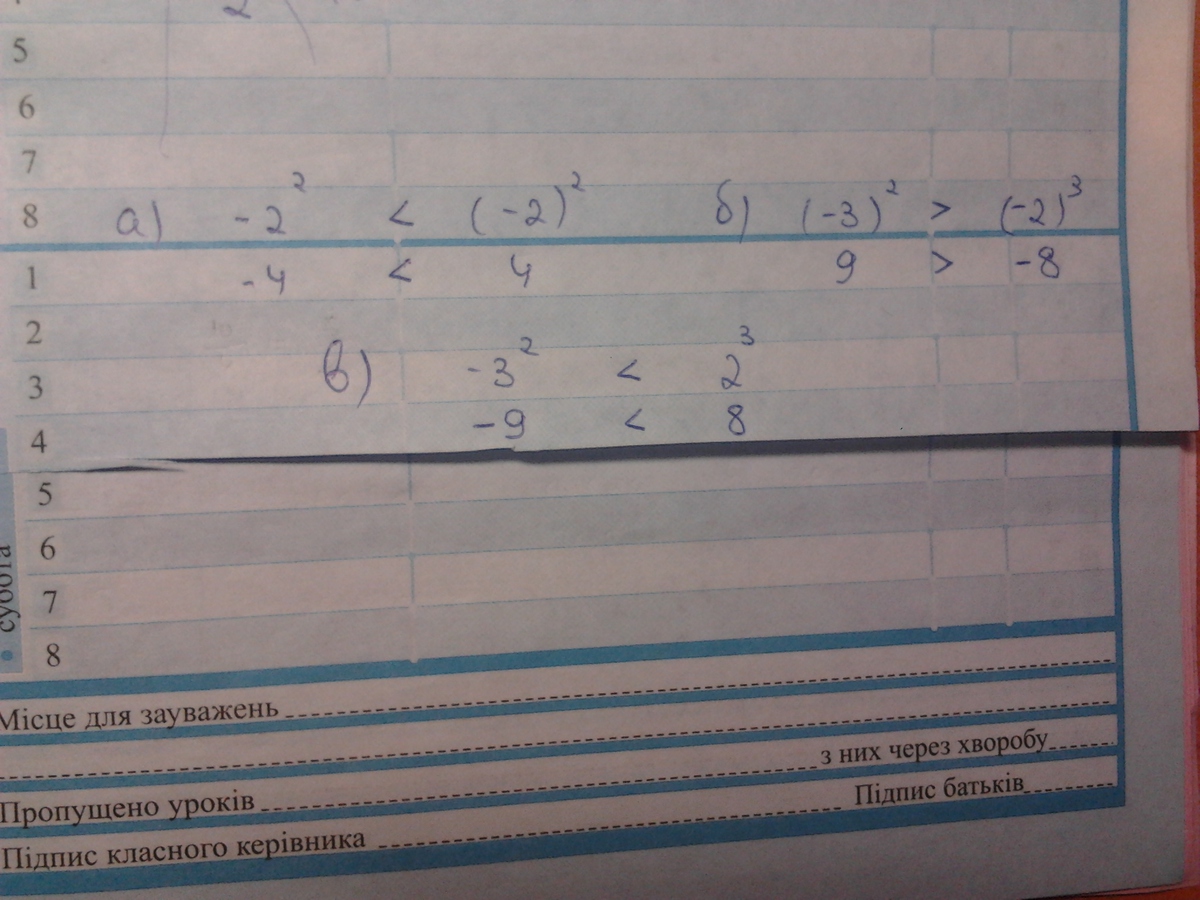 2
5
6
7
8 а) -2² < (-2)² б) (-3)² > (-2)³
1 -4 < 4 9 > -8
2
3 в) -3² < 2³
4 -9 < 8
5
6
7
8
• субота
Місце для зауважень
з них через хворобу
Пропущено уроків
Підпис батьків
Підпис класного керівника